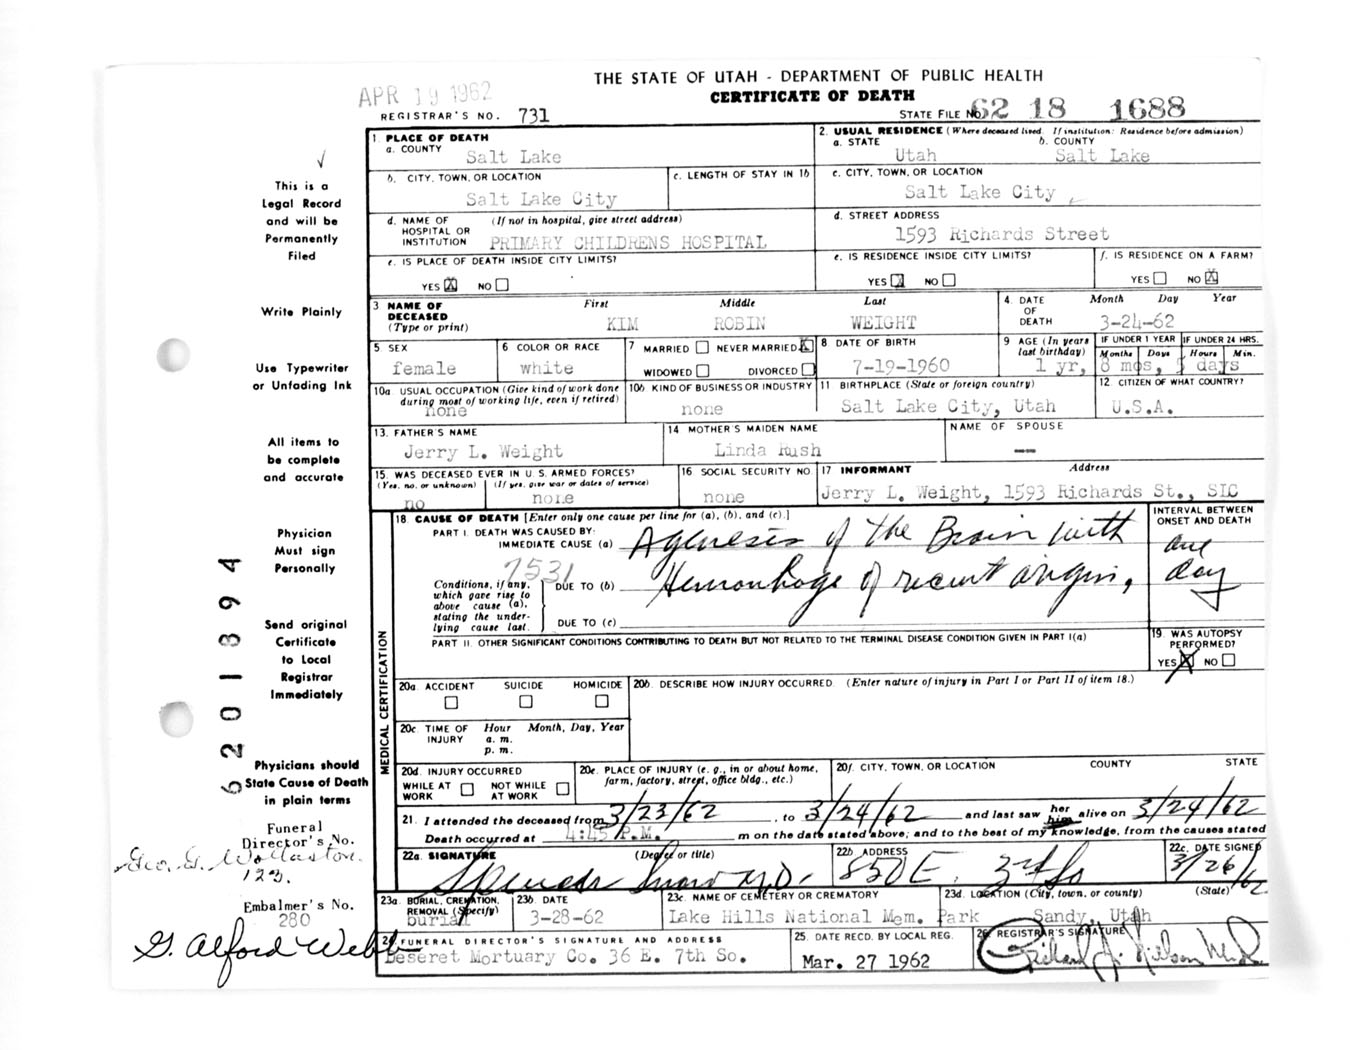 THE STATE OF UTAH - DEPARTMENT OF PUBLIC HEALTH
CERTIFICATE OF DEATH
APR 19 1962
REGISTRAR'S NO. 731
STATE FILE NO. 62 18 1688
1. PLACE OF DEATH
a. COUNTY Salt Lake
2. USUAL RESIDENCE (Where deceased lived. If institution: Residence before admission)
a. STATE Utah b. COUNTY Salt Lake
b. CITY, TOWN, OR LOCATION Salt Lake City
c. LENGTH OF STAY IN 1b
c. CITY, TOWN, OR LOCATION Salt Lake City
d. NAME OF HOSPITAL OR INSTITUTION (If not in hospital, give street address) PRIMARY CHILDRENS HOSPITAL
d. STREET ADDRESS 1593 Richards Street
e. IS PLACE OF DEATH INSIDE CITY LIMITS? YES X NO
e. IS RESIDENCE INSIDE CITY LIMITS? YES X NO
f. IS RESIDENCE ON A FARM? YES NO X
3 NAME OF DECEASED (Type or print) First KIM Middle ROBIN Last WEIGHT
4. DATE OF DEATH Month Day Year 3-24-62
5 SEX female
6 COLOR OR RACE white
7 MARRIED NEVER MARRIED X WIDOWED DIVORCED
8 DATE OF BIRTH 7-19-1960
9 AGE (In years last birthday) IF UNDER 1 YEAR Months Days IF UNDER 24 HRS. Hours Min.
1 yr, 8 mos, 5 days
10a. USUAL OCCUPATION (Give kind of work done during most of working life, even if retired) none
10b KIND OF BUSINESS OR INDUSTRY none
11 BIRTHPLACE (State or foreign country) Salt Lake City, Utah
12 CITIZEN OF WHAT COUNTRY? U.S.A.
13. FATHER'S NAME Jerry L. Weight
14 MOTHER'S MAIDEN NAME Linda Rush
NAME OF SPOUSE --
15. WAS DECEASED EVER IN U.S. ARMED FORCES? (Yes, no, or unknown) (If yes, give war or dates of service) no none
16 SOCIAL SECURITY NO. none
17 INFORMANT Address Jerry L. Weight, 1593 Richards St., SLC
18. CAUSE OF DEATH [Enter only one cause per line for (a), (b), and (c).]
INTERVAL BETWEEN ONSET AND DEATH
PART I. DEATH WAS CAUSED BY:
IMMEDIATE CAUSE (a) Agenesis of the Brain with one
7531
Conditions, if any, which gave rise to above cause (a), stating the underlying cause last.
DUE TO (b) Hemorrhage of recent origin, day
DUE TO (c)
PART II. OTHER SIGNIFICANT CONDITIONS CONTRIBUTING TO DEATH BUT NOT RELATED TO THE TERMINAL DISEASE CONDITION GIVEN IN PART I(a)
19. WAS AUTOPSY PERFORMED? YES X NO
MEDICAL CERTIFICATION
20a. ACCIDENT SUICIDE HOMICIDE
20b. DESCRIBE HOW INJURY OCCURRED. (Enter nature of injury in Part I or Part II of item 18.)
20c. TIME OF INJURY Hour a. m. p. m. Month, Day, Year
20d. INJURY OCCURRED WHILE AT WORK NOT WHILE AT WORK
20e. PLACE OF INJURY (e. g., in or about home, farm, factory, street, office bldg., etc.)
20f. CITY, TOWN, OR LOCATION COUNTY STATE
21. I attended the deceased from 3/23/62, to 3/24/62 and last saw her him alive on 3/24/62
Death occurred at 4:45 P.M. m on the date stated above; and to the best of my knowledge, from the causes stated
22a. SIGNATURE (Degree or title) Spencer Snow M.D.
22b. ADDRESS 850 E. 3rd So
22c. DATE SIGNED 3/26/62
23a. BURIAL, CREMATION, REMOVAL (Specify) burial
23b. DATE 3-28-62
23c. NAME OF CEMETERY OR CREMATORY Lake Hills National Mem. Park
23d. LOCATION (City, town, or county) (State) Sandy, Utah
24. FUNERAL DIRECTOR'S SIGNATURE AND ADDRESS Deseret Mortuary Co. 36 E. 7th So.
25. DATE RECD. BY LOCAL REG. Mar. 27 1962
26. REGISTRAR'S SIGNATURE
This is a
Legal Record
and will be
Permanently
Filed
Write Plainly
Use Typewriter
or Unfading Ink
All items to
be complete
and accurate
Physician
Must sign
Personally
Send original
Certificate
to Local
Registrar
Immediately
Physicians should
State Cause of Death
in plain terms
Funeral
Director's No.
Geo. G. Wollaston
123.
Embalmer's No.
280
G. Alford Webb
6201894